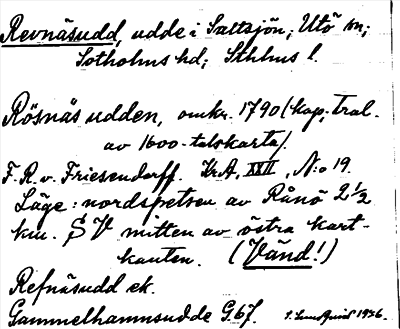 Revnäsudd, udde i Saltsjön, Utö sn;
Sotholms hd; Sthlms l.
Rösnäs udden, omkr. 1790 (kop. trol.
av 1600-talskarta).
F. R. v. Friesendorff. Kr.A, XXII, N:o 19.
Läge: nordspetsen av Rånö 2 1/2
km. SV mitten av östra kart-
kanten. (Vänd!)
Refnäsudd ek.
Gammelhamnsudde G.67. 1936.